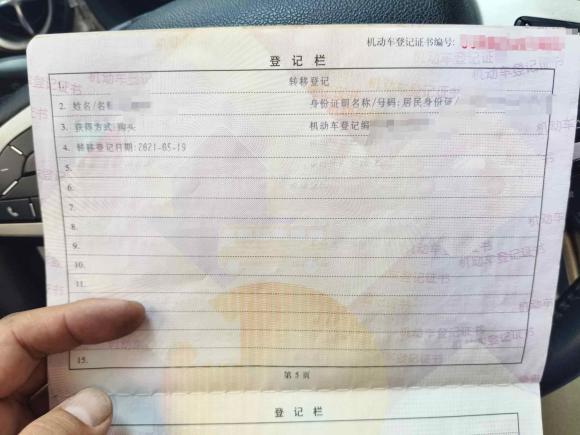 机动车登记证书编号:
登记栏
1. 转移登记
2. 姓名/名称 身份证明名称/号码:居民身份证/
3. 获得方式:购买 机动车登记编
4. 转移登记日期:2021-05-19
5.
6.
7.
8.
9.
10.
11.
15.
第5页
登记栏